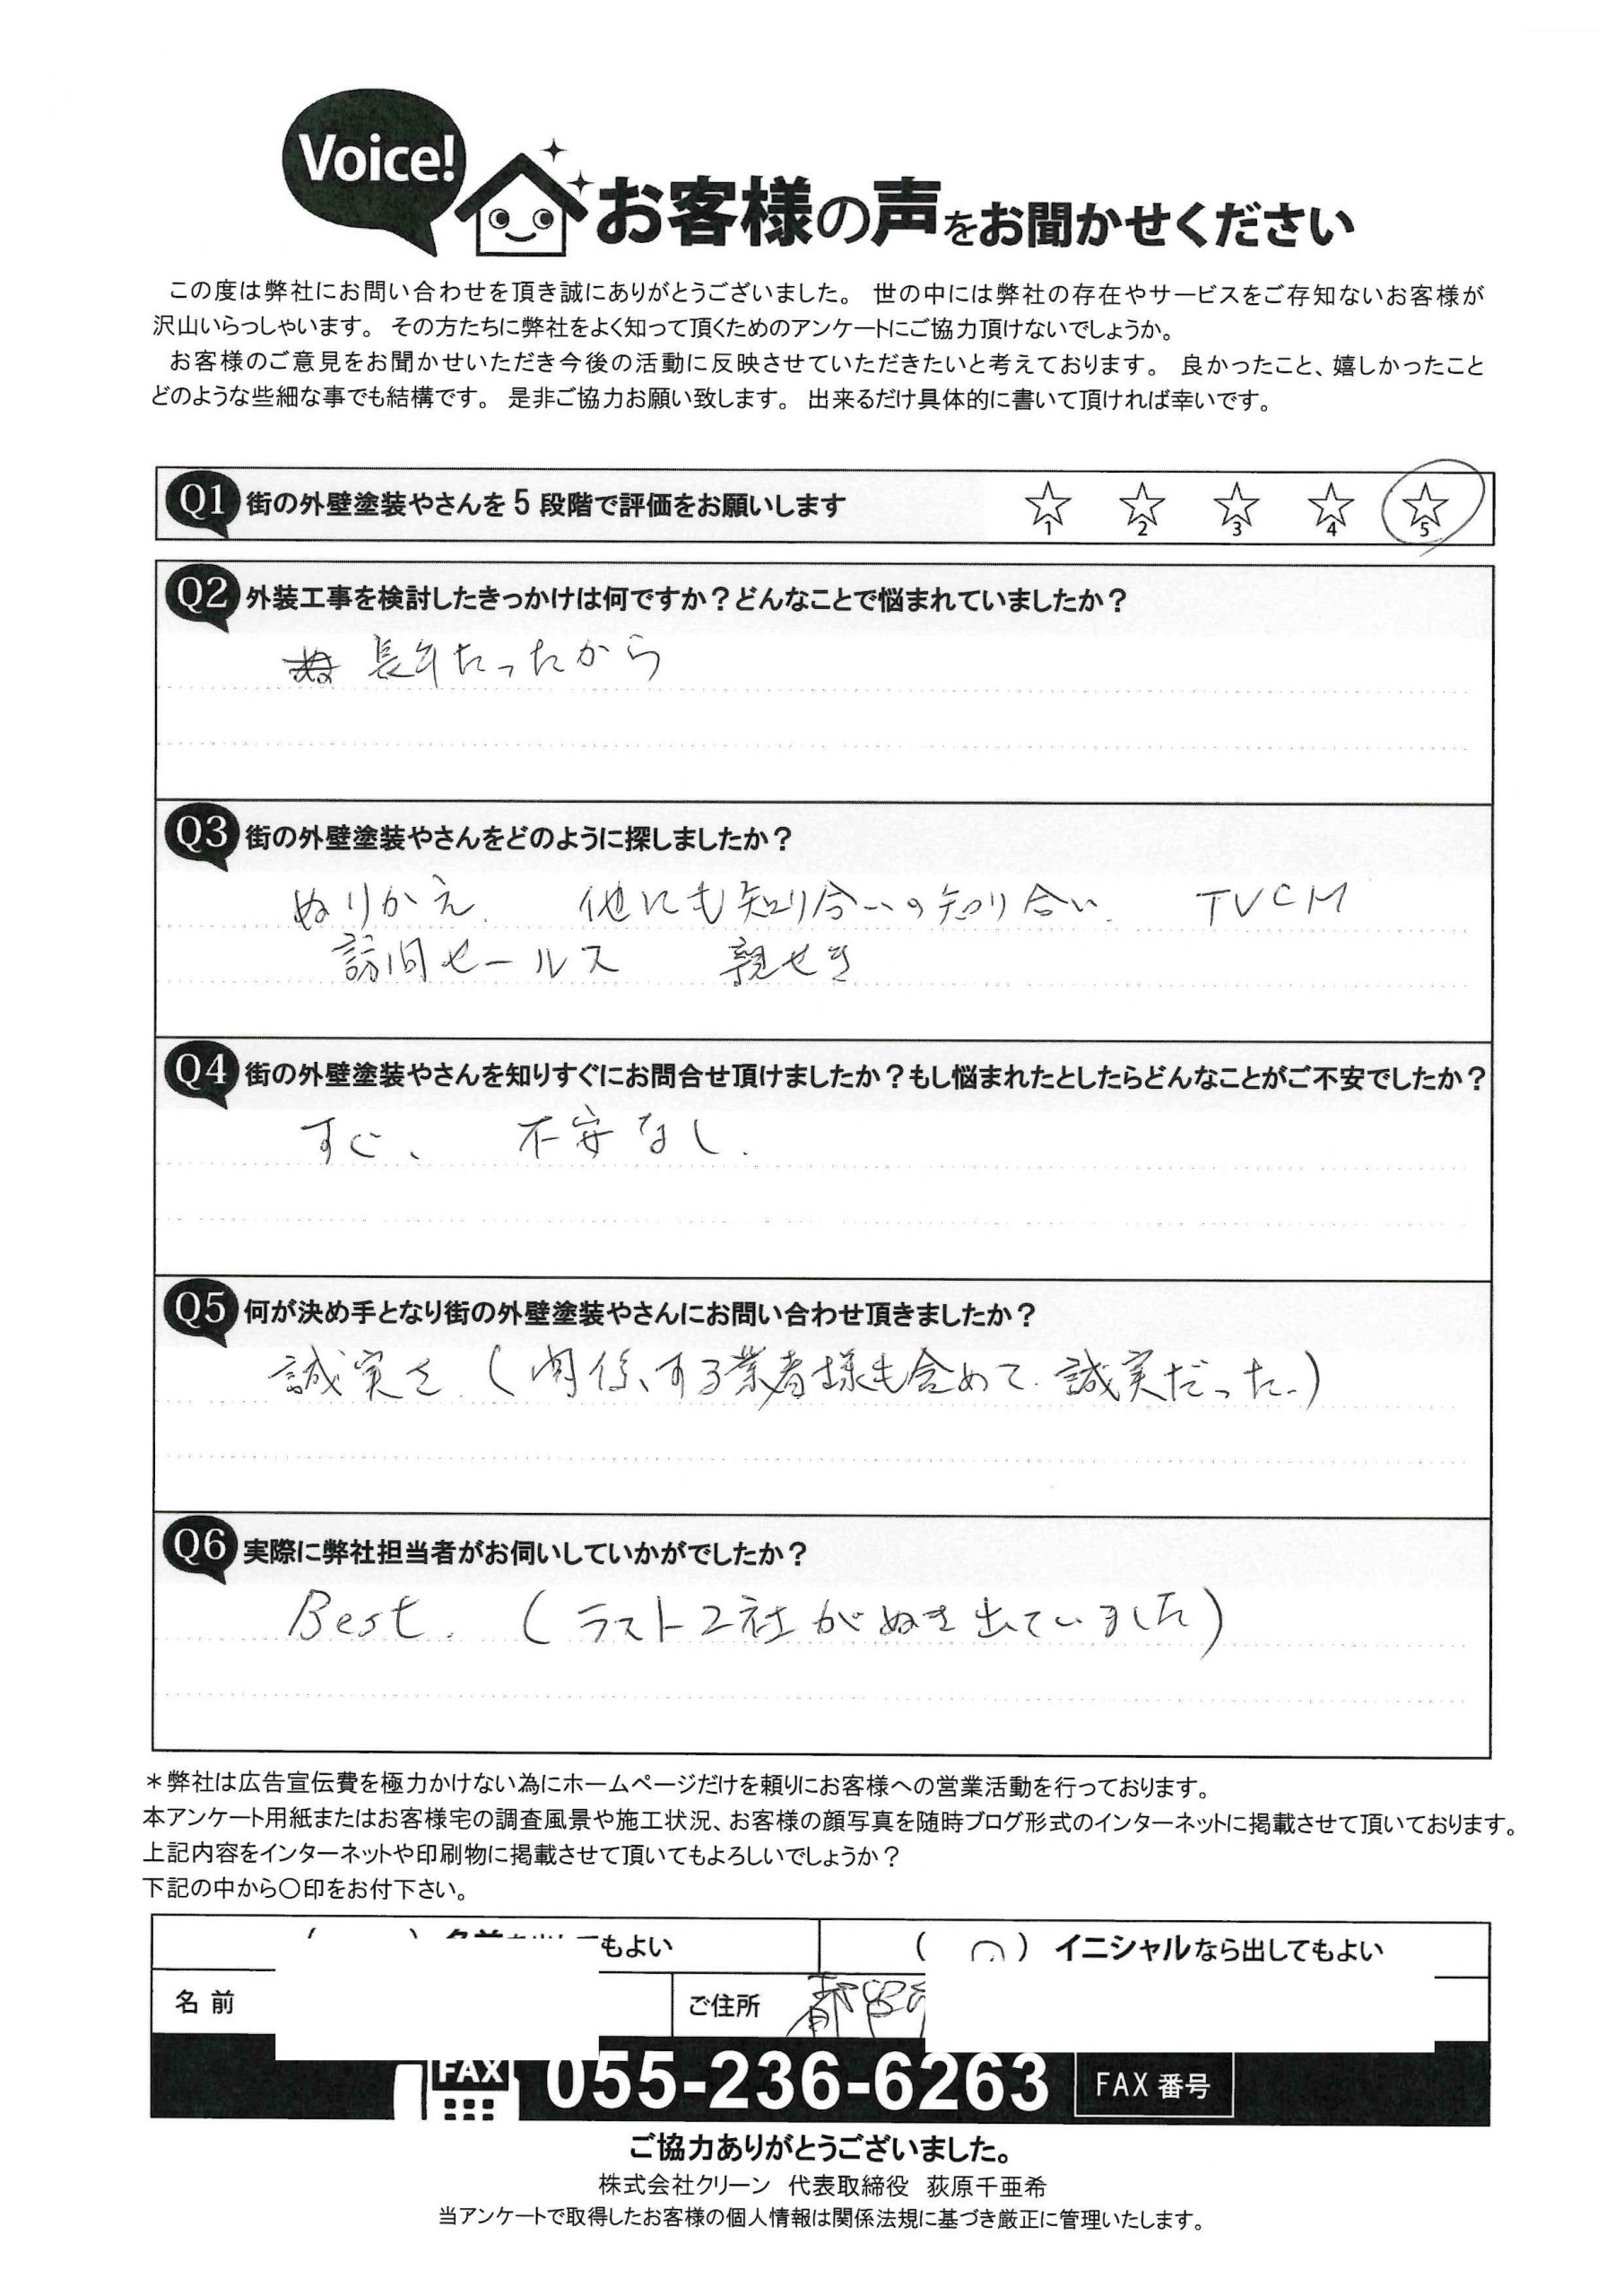 Voice!
お客様の声をお聞かせください
この度は弊社にお問い合わせを頂き誠にありがとうございました。 世の中には弊社の存在やサービスをご存知ないお客様が
沢山いらっしゃいます。 その方たちに弊社をよく知って頂くためのアンケートにご協力頂けないでしょうか。
お客様のご意見をお聞かせいただき今後の活動に反映させていただきたいと考えております。 良かったこと、嬉しかったこと
どのような些細な事でも結構です。 是非ご協力お願い致します。 出来るだけ具体的に書いて頂ければ幸いです。
Q1 街の外壁塗装やさんを5段階で評価をお願いします ☆1 ☆2 ☆3 ☆4 ☆5
Q2 外装工事を検討したきっかけは何ですか？どんなことで悩まれていましたか？
長年たったから
Q3 街の外壁塗装やさんをどのように探しましたか？
ぬりかえ. 他にも知り合いの知り合い. TVCM
訪問セールス 親せき
Q4 街の外壁塗装やさんを知りすぐにお問合せ頂けましたか？もし悩まれたとしたらどんなことがご不安でしたか？
すぐ、 不安なし.
Q5 何が決め手となり街の外壁塗装やさんにお問い合わせ頂きましたか？
誠実さ.(関係する業者様も含めて.誠実だった.)
Q6 実際に弊社担当者がお伺いしていかがでしたか？
Best. (ラスト2社がぬき出ていました)
＊弊社は広告宣伝費を極力かけない為にホームページだけを頼りにお客様への営業活動を行っております。
本アンケート用紙またはお客様宅の調査風景や施工状況、お客様の顔写真を随時ブログ形式のインターネットに掲載させて頂いております。
上記内容をインターネットや印刷物に掲載させて頂いてもよろしいでしょうか？
下記の中から〇印をお付下さい。
もよい (○) イニシャルなら出してもよい
名前 ご住所 都留
FAX 055-236-6263 FAX 番号
ご協力ありがとうございました。
株式会社クリーン 代表取締役 荻原千亜希
当アンケートで取得したお客様の個人情報は関係法規に基づき厳正に管理いたします。